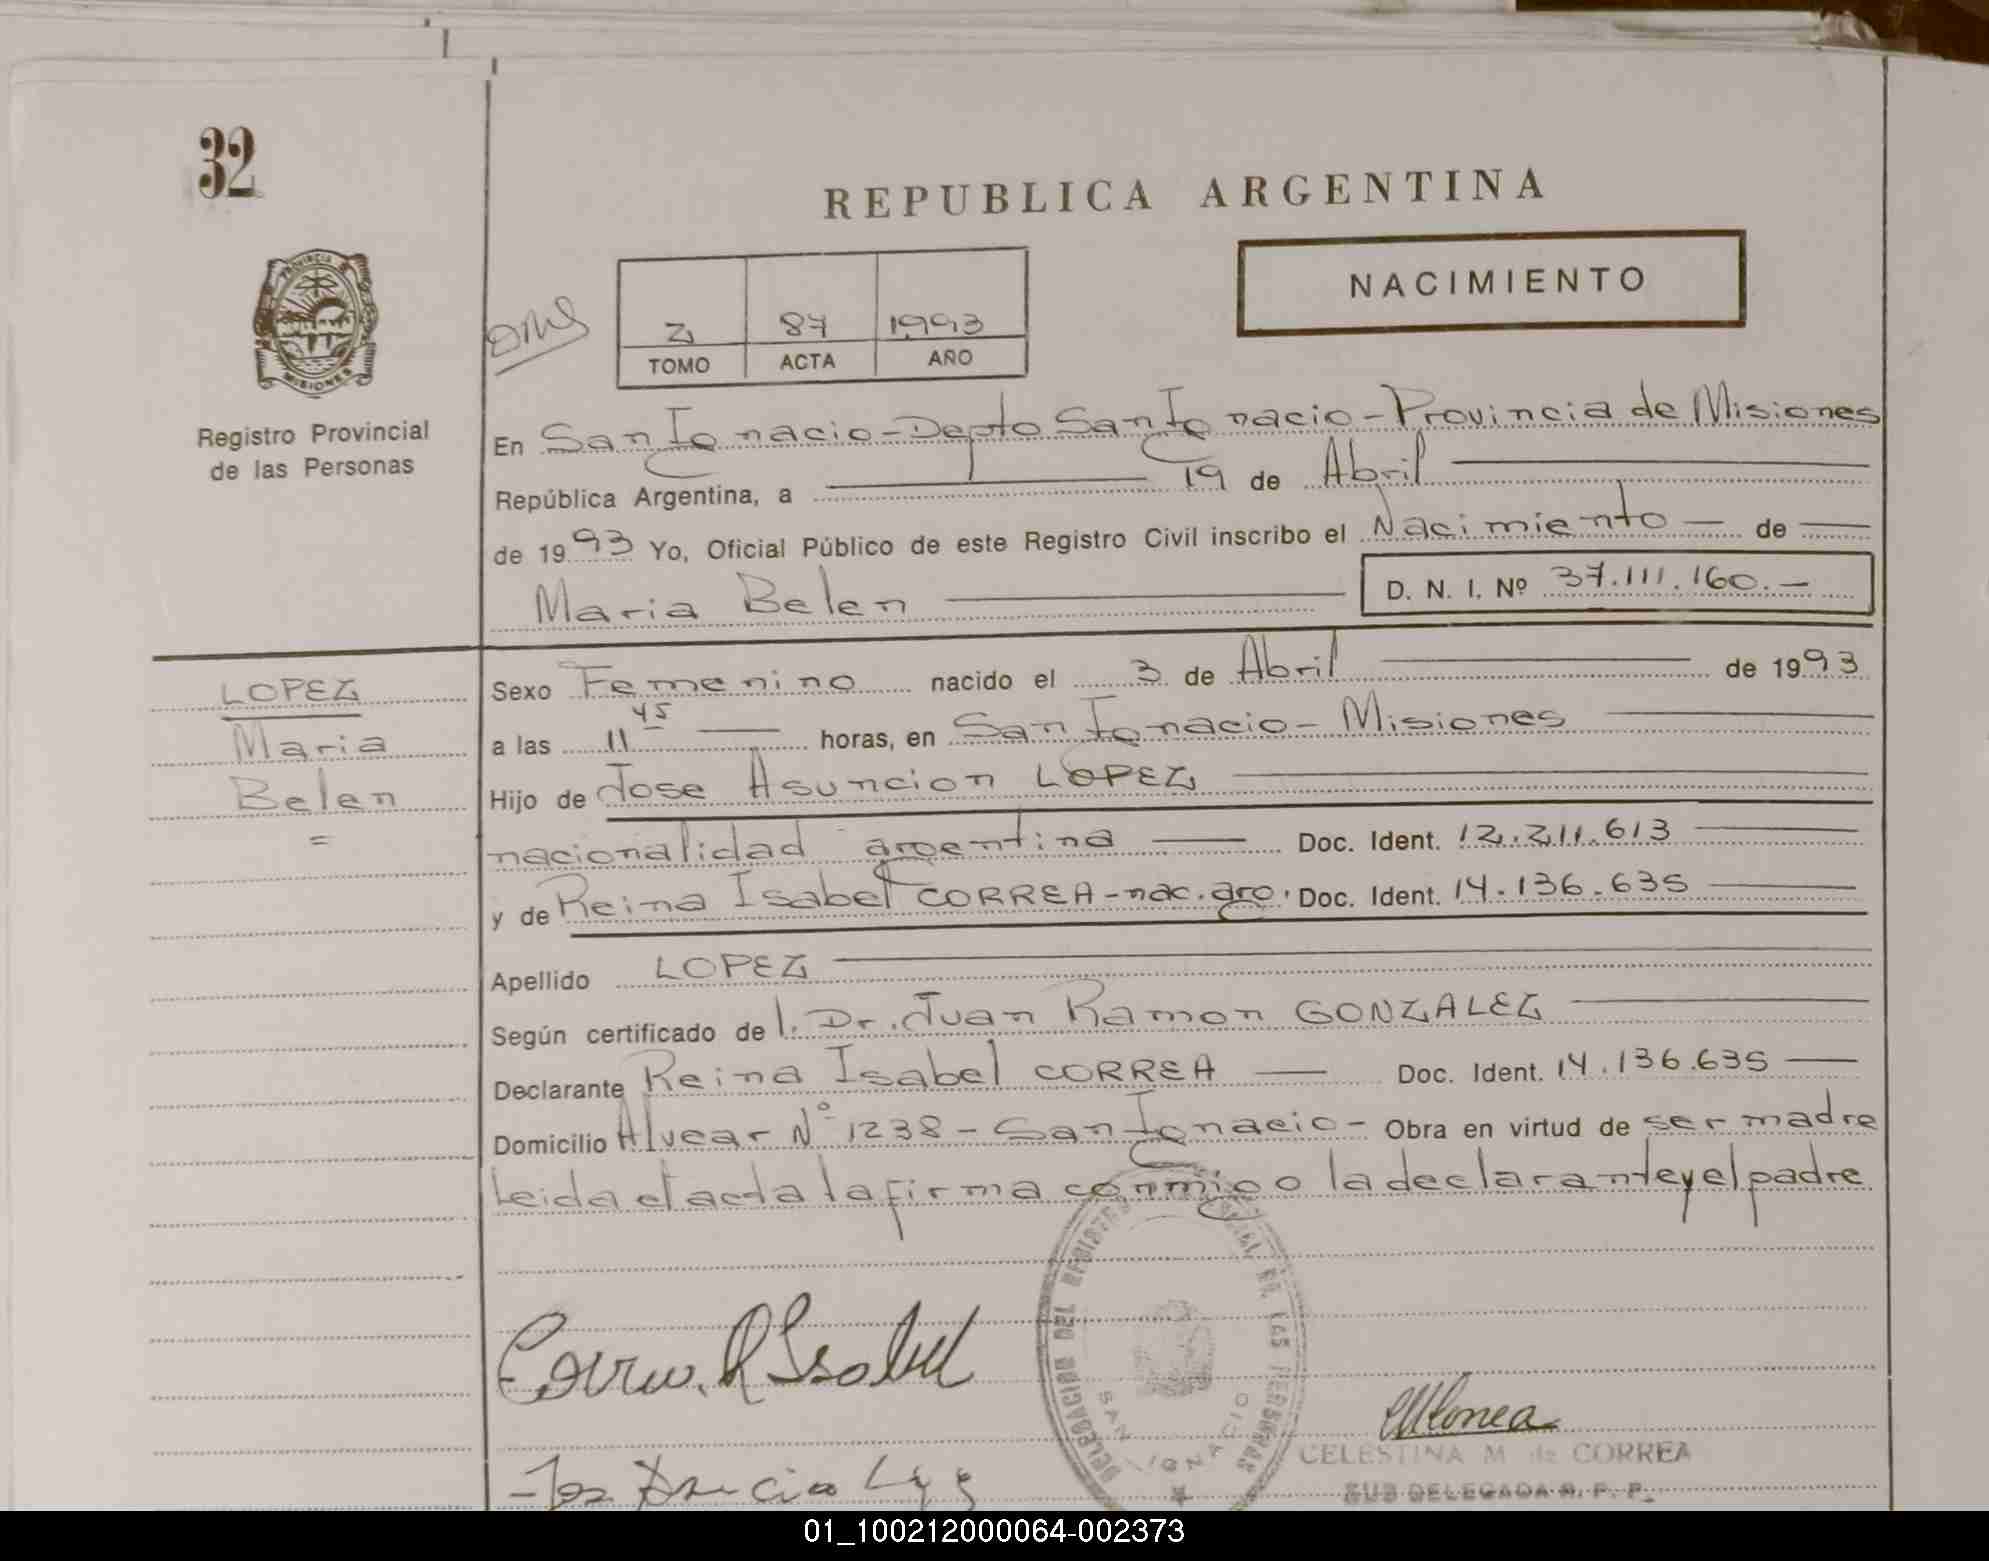 32
REPUBLICA ARGENTINA
PROVINCIA
MISIONES
Registro Provincial
de las Personas
NACIMIENTO
2 87 1993
TOMO ACTA AÑO
En San Ignacio - Depto San Ignacio - Provincia de Misiones
República Argentina, a 19 de Abril
de 1993 Yo, Oficial Público de este Registro Civil inscribo el Nacimiento — de
Maria Belen D. N. I. Nº 37.111.160.-
LOPEZ
Maria
Belen
=
Sexo Femenino nacido el 3 de Abril de 1993
a las 11 45 horas, en San Ignacio - Misiones
Hijo de Jose Asuncion LOPEZ
nacionalidad argentina Doc. Ident. 12.211.613
y de Reina Isabel CORREA - nac. arg. Doc. Ident. 14.136.635
Apellido LOPEZ
Según certificado de l. Dr. Juan Ramon GONZALEZ
Declarante Reina Isabel CORREA Doc. Ident. 14.136.635
Domicilio Alvear Nº 1238 - San Ignacio - Obra en virtud de ser madre
Leida el acta la firma conmigo la declarante y el padre
Correa. R Isabel
DELEGACION DEL REGISTRO PROVINCIAL DE LAS PERSONAS
SAN IGNACIO
CELESTINA M de CORREA
SUB DELEGADA R. P. P.
01_100212000064-002373